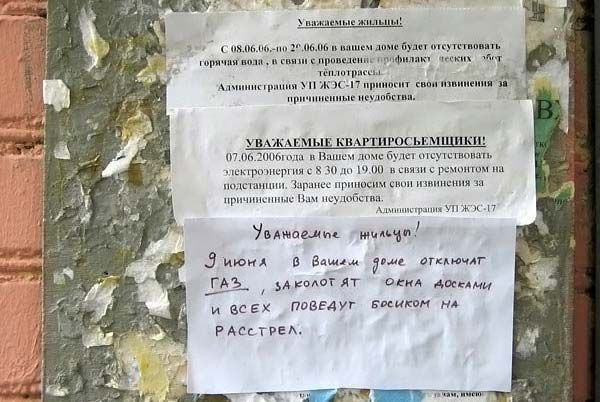 Уважаемые жильцы!
С 08.06.06.-по 20.06.06 в вашем доме будет отсутствовать
горячая вода , в связи с проведением профилактических работ
теплотрассы.
Администрация УП ЖЭС-17 приносит свои извинения за
причиненные неудобства.
УВАЖАЕМЫЕ КВАРТИРОСЬЕМЩИКИ!
07.06.2006года в Вашем доме будет отсутствовать
электроэнергия с 8 30 до 19.00 в связи с ремонтом на
подстанции. Заранее приносим свои извинения за
причиненные Вам неудобства.
Администрация УП ЖЭС-17
Уважаемые жильцы!
9 июня в Вашем доме отключат
ГАЗ, заколотят окна досками
и всех поведут босиком на
расстрел.